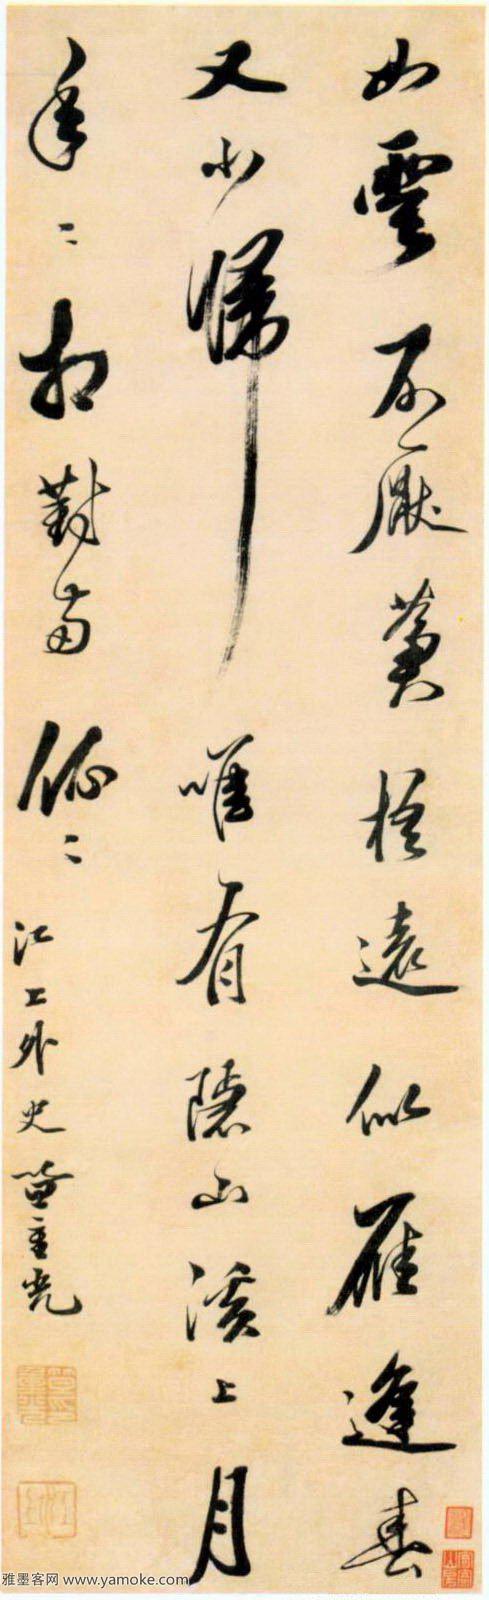 如雲不厭蒼梧遠似雁逢春
又北歸唯有隱山溪上月
年〻相對兩依〻
江上外史笪重光
雅墨客网 www.yamoke.com